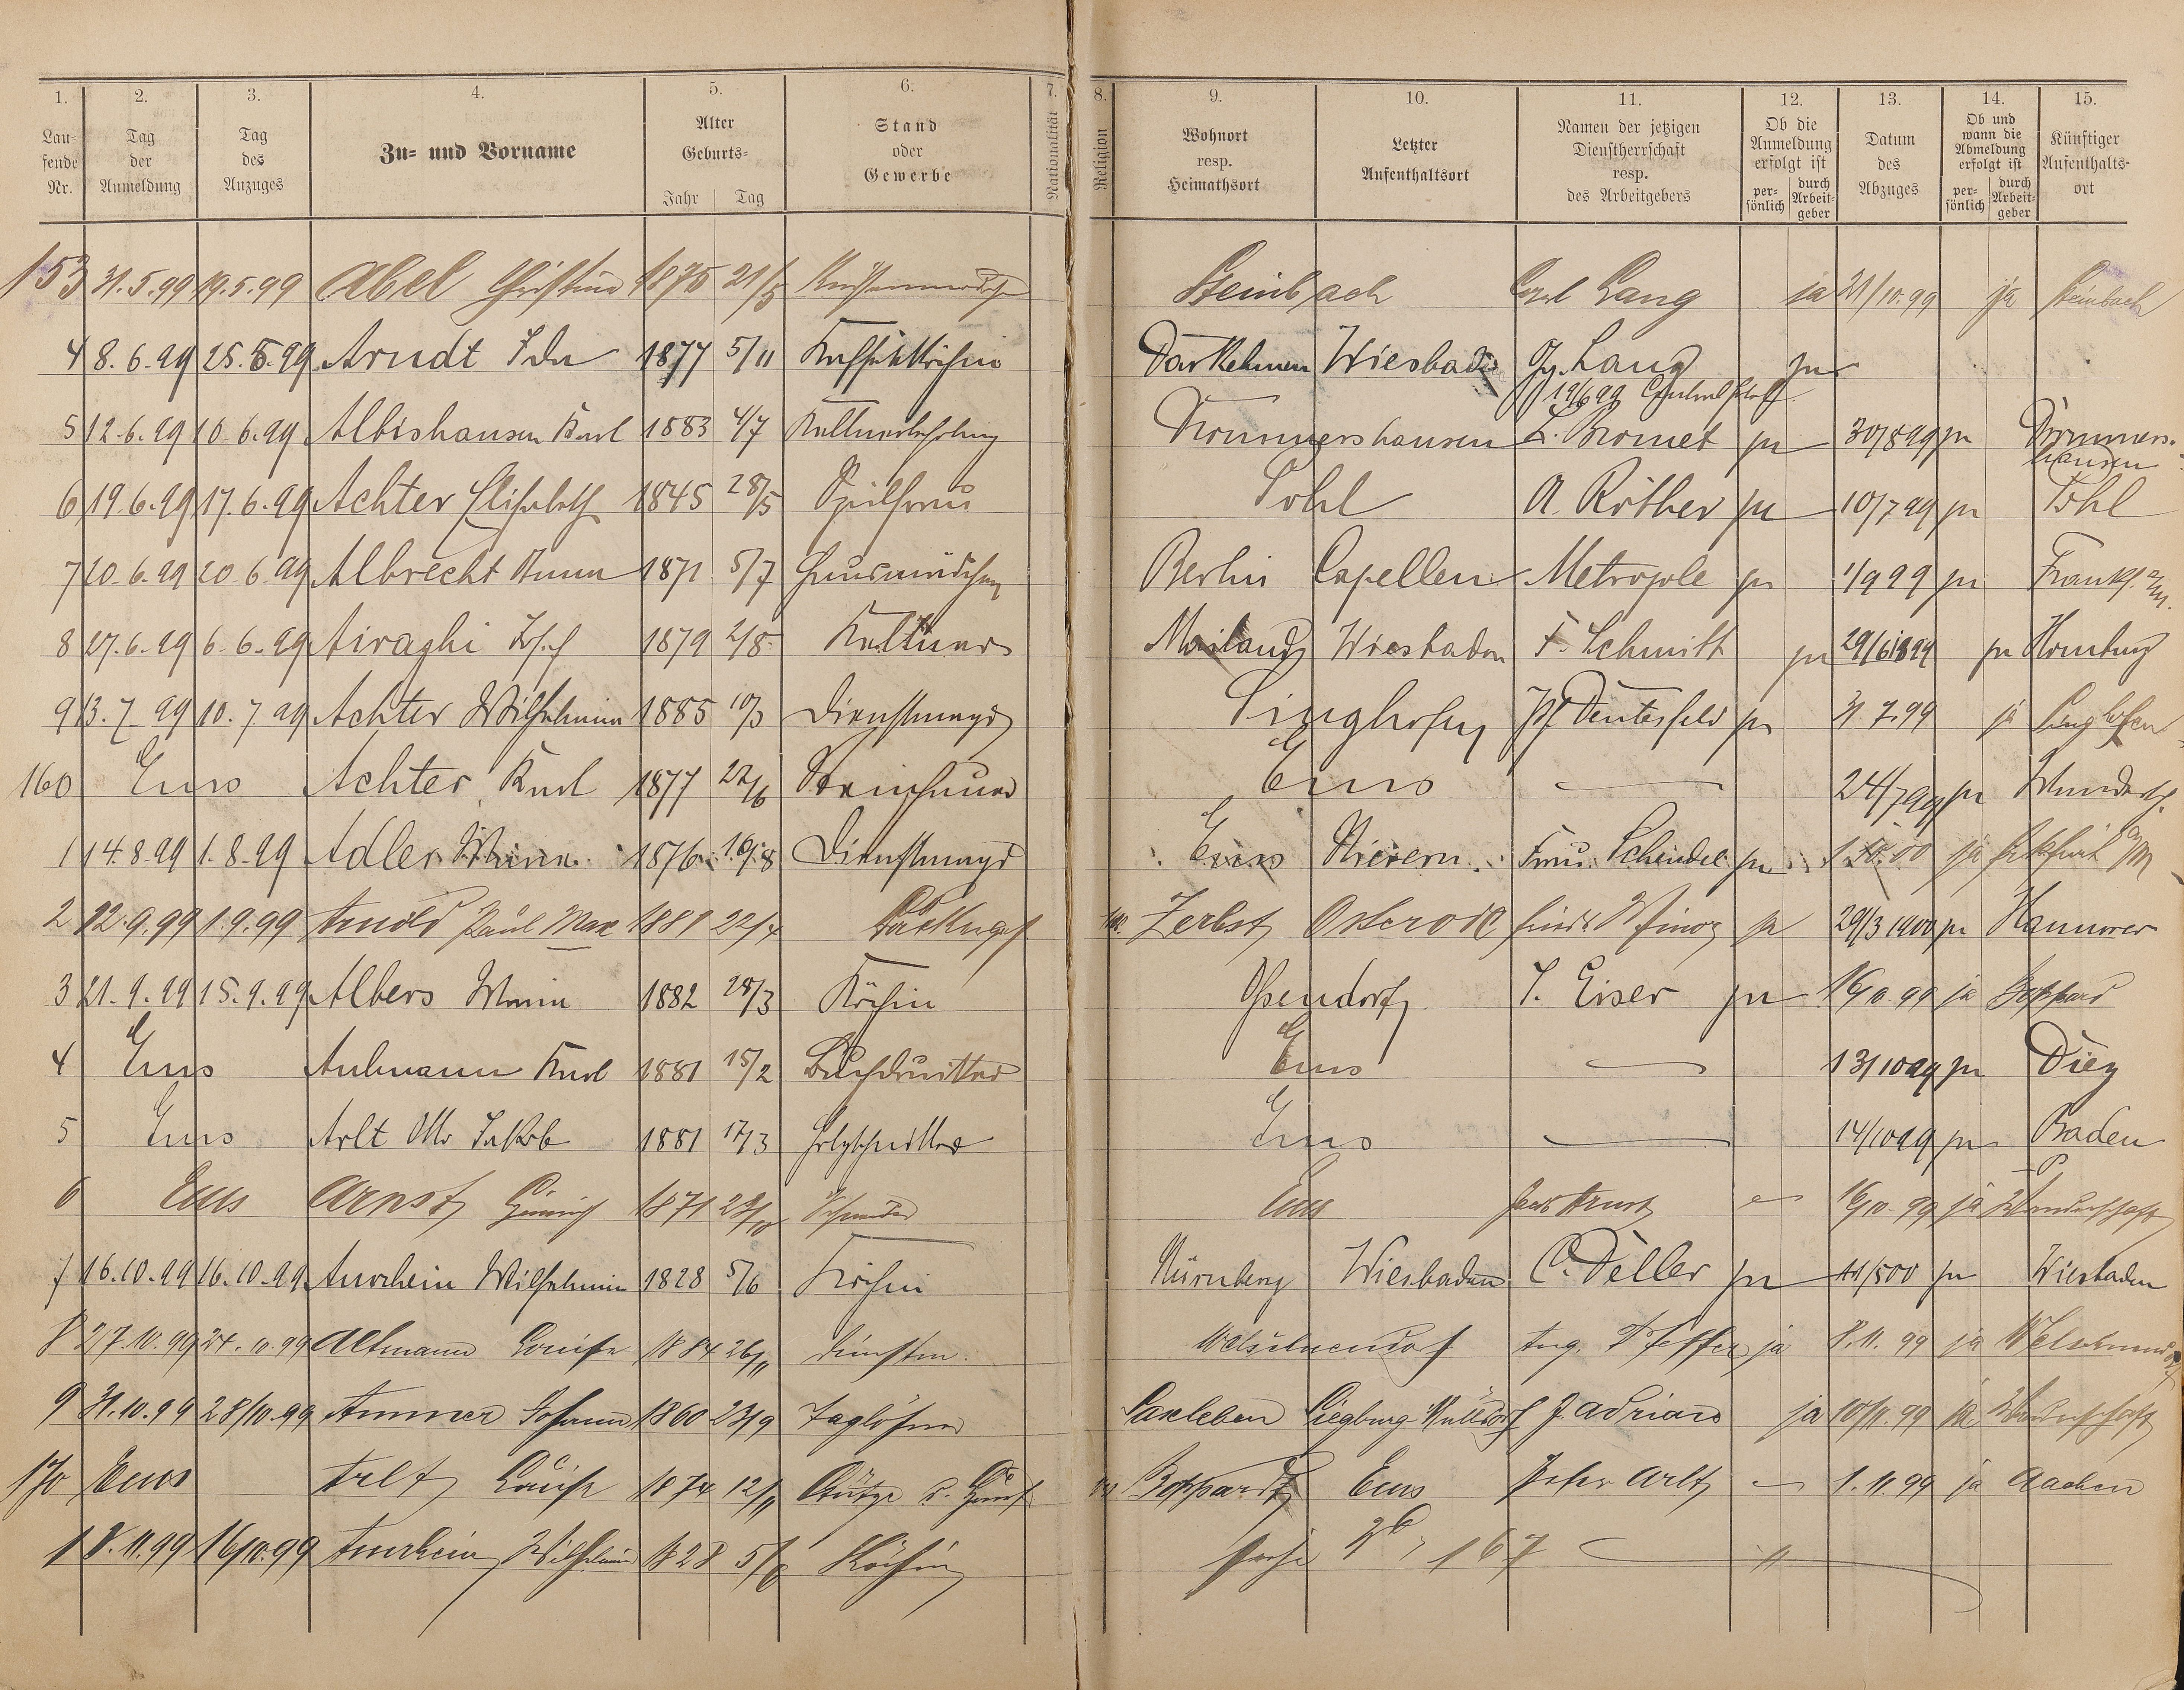 1. 2. 3. 4. 5. 6. 7. 8. 9. 10. 11. 12. 13. 14. 15.
Laufende Nr. Tag der Anmeldung Tag des Anzuges Zu- und Vorname Alter Geburts- Jahr Tag Stand oder Gewerbe Nationalität Religion Wohnort resp. Heimathsort Letzter Aufenthaltsort Namen der jetzigen Dienstherrschaft resp. des Arbeitgebers Ob die Anmeldung erfolgt ist persönlich durch Arbeitgeber Datum des Abzuges Ob und wann die Abmeldung erfolgt ist persönlich durch Arbeitgeber Künftiger Aufenthaltsort
153 31.5.99 19.5.99 Abel Christine 1875 Küchenmädchen Steinbach Carl Lang ja 21/10.99 ja Steinbach
4 8.6.99 25.5.99 Arndt Ida 1877 5/11 Kaffeeköchin Darkehmen Wiesbaden Gg. Lang ja
19/6 99
5 12.6.99 10.6.99 Albishausen Karl 1883 4/7 Kellnerlehrling Drommershausen L. Bromet ja 30/8 99 ja Drommers-
hausen
6 19.6.99 17.6.99 Achter Elisabeth 1845 28/5 Spülfrau Pohl A. Röther ja 10/7 99 ja Pohl
7 20.6.99 20.6.99 Albrecht Anna 1871 5/7 Hausmädchen Berlin Capellen Metropole ja 1/9 99 ja Frankf. a/M.
8 27.6.99 6.6.99 Airaghi Josef 1879 2/8 Kellner Mailand Wiesbaden F. Schmitt ja 29/6 1899 ja Homburg
9 13.7.99 10.7.99 Achter Wilhelmine 1885 10/3 Dienstmagd Singhofen Deutesfeld ja 31.7.99 ja Singhofen
160 Ems Achter Karl 1877 22/6 Steinhauer Ems — 24/7 99 ja Wandersch.
1 14.8.99 1.8.99 Adler 1876 16/8 Dienstmagd Ems Nievern Frau Schendel ja 1.10.00 ja Frkfurt a/M
2 12.9.99 1.9.99 Arnold Paul Max 1881 22/4 Zerbst Osterode ja 29/3 1900 ja Hannover
3 21.9.99 15.9.99 Albers Maria 1882 28/3 Köchin Ossendorf J. Eiser ja 16/10 99 ja Boppard
4 Ems Aulmann Karl 1881 15/2 Buchdrucker Ems — 13/10 99 ja Diez
5 Ems Arlt Otto Jakob 1881 17/3 Holzschnittz Ems — 14/10 99 ja Baden
6 Ems Arnst Heinrich 1871 Schneider Ems Arnst 16/10.99 ja Wanderschaft
7 16.10.99 16.10.99 Amrhein Wilhelmine 1828 5/6 Köchin Nürnberg Wiesbaden C. Deller ja 11/5 00 ja Wiesbaden
8 27.10.99 24.10.99 Altmann Louise 1884 26/11 Dienstm. Welschneudorf Aug. Pfeffer ja 8.11.99 ja Welschneudorf
9 31.10.99 28/10.99 Ammer Johann 1860 23/9 Taglöhner Saxleben Siegburg Mülldorf J. Adriano ja 10/11.99 ja Wanderschaft
170 Ems Arlt Louise 1874 12/11 Stütze d. Hausf Boppard Ems Peter Arlt — 1.11.99 ja Aachen
1 8.11.99 16/10.99 Amrhein Wilhelmine 1828 5/6 Köchin siehe No 167